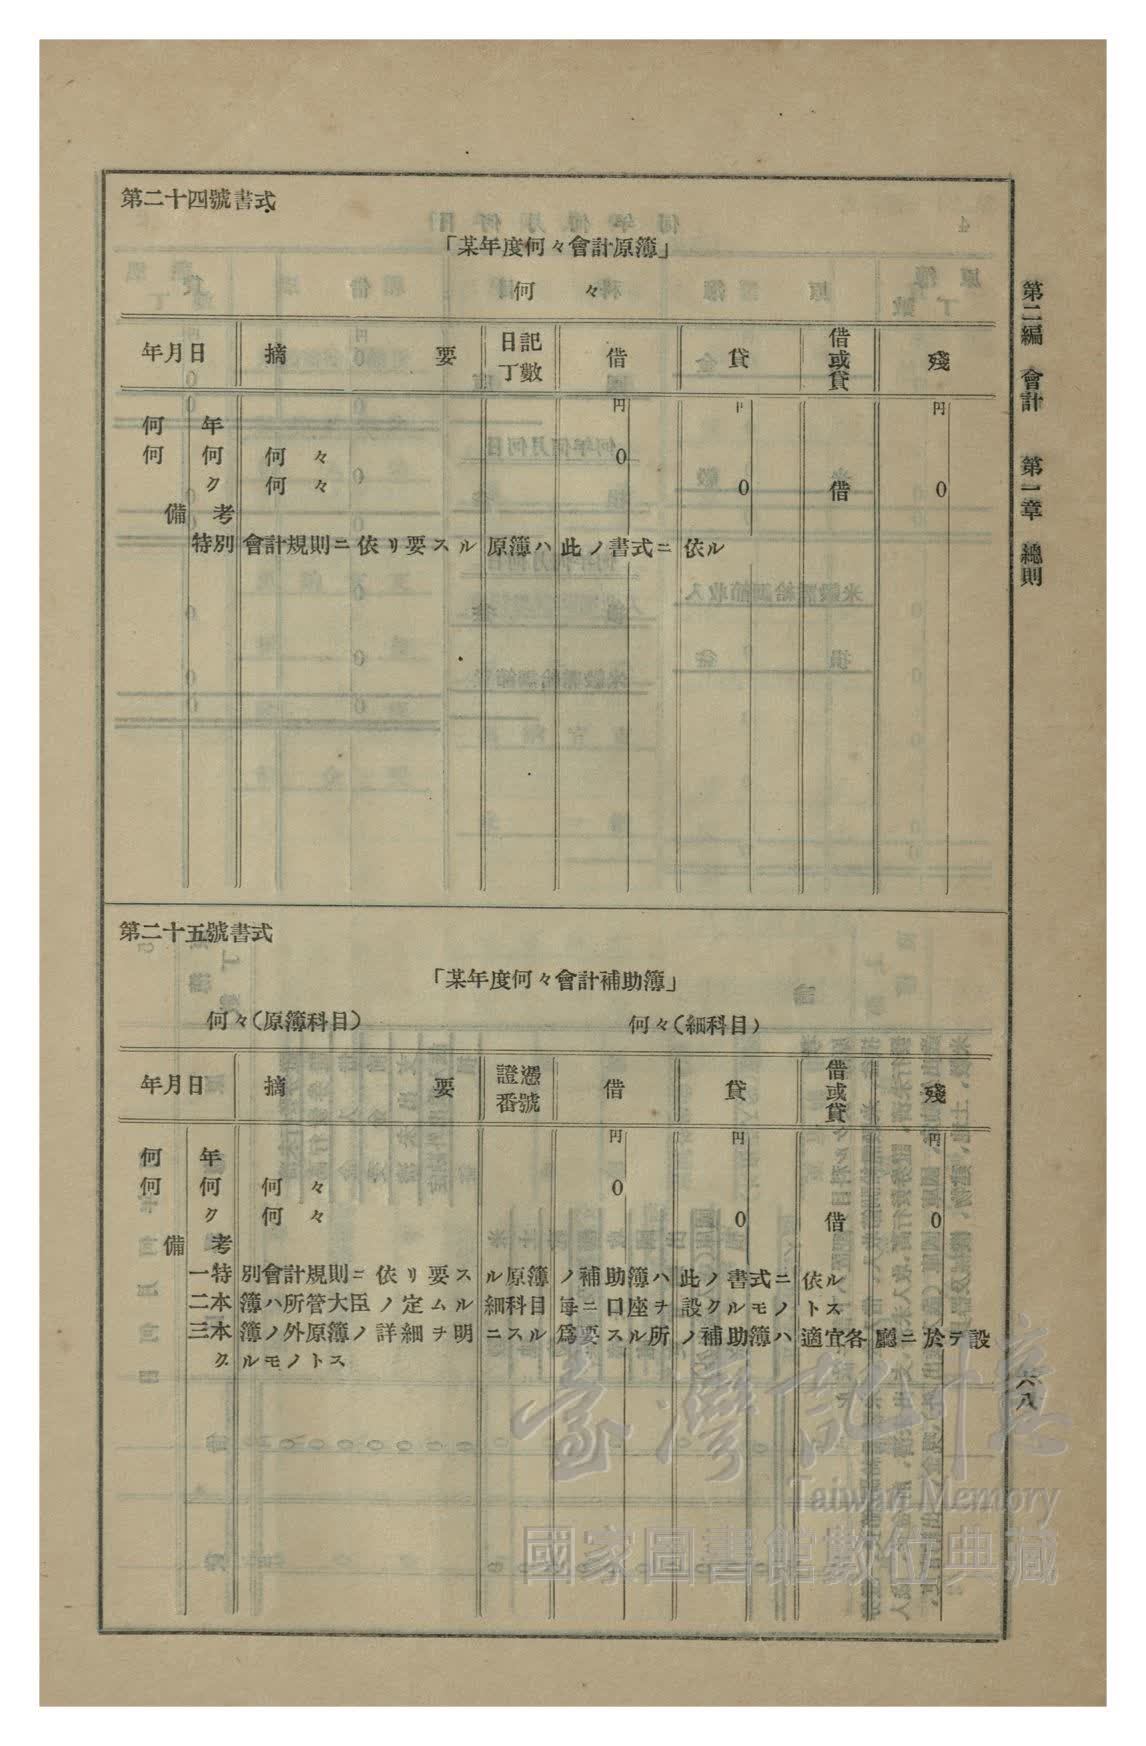 第二編　會計　　第一章　總則
第二十四號書式
「某年度何々會計原簿」
何　々
年月日　摘　要　日記丁數　借　貸　借或貸　殘
円　円　円
何　年
何　何　何　々　0
ク　何　々　0　借　0
備　考
特別會計規則ニ依リ要スル原簿ハ此ノ書式ニ依ル
第二十五號書式
「某年度何々會計補助簿」
何々(原簿科目)　何々(細科目)
年月日　摘　要　證憑番號　借　貸　借或貸　殘
円　円　円
何　年
何　何　何　々　0
ク　何　々　0　借　0
備　考
一特別會計規則ニ依リ要スル原簿ノ補助簿ハ此ノ書式ニ依ル
二本簿ハ所管大臣ノ定ムル細科目每ニ口座ヲ設クルモノトス
三本簿ノ外原簿ノ詳細ヲ明ニスル爲要スル所ノ補助簿ハ適宜各廳ニ於テ設
クルモノトス
六八
臺灣記憶
Taiwan Memory
國家圖書館數位典藏